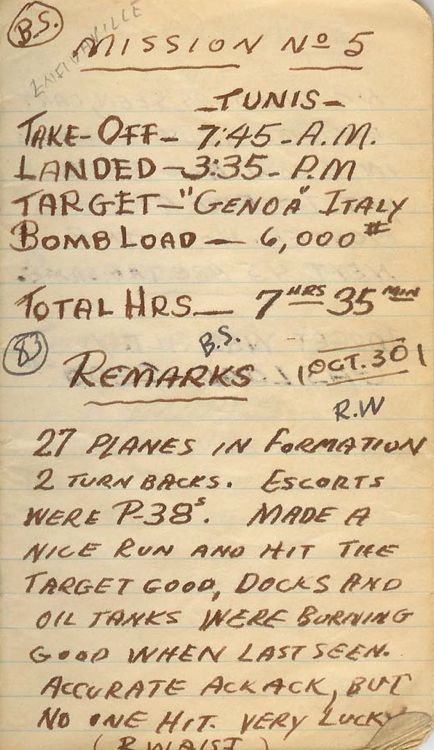 B.S.
MISSION Nº 5
-TUNIS-
TAKE-OFF- 7:45-A.M.
LANDED-3:35-P.M
TARGET-"GENOA" ITALY
BOMB LOAD - 6,000#
TOTAL HRS- 7 HRS 35 MIN
83
B.S.
REMARKS
OCT. 30
R.W
27 PLANES IN FORMATION
2 TURN BACKS. ESCORTS
WERE P-38s. MADE A
NICE RUN AND HIT THE
TARGET GOOD, DOCKS AND
OIL TANKS WERE BURNING
GOOD WHEN LAST SEEN.
ACCURATE ACKACK, BUT
NO ONE HIT. VERY LUCKY
(R.WAIST)